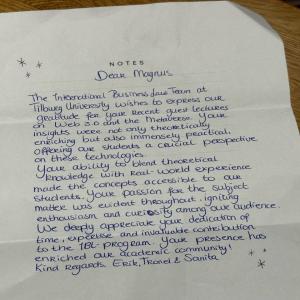 NOTES
Dear Magnus.
The International Business Law Team at
Tilburg University wishes to express our
gratitude for your recent guest lectures
on Web 3.0 and the Metaverse. Your
insights were not only theoretically
enriching but also immensely practical,
offering our students a crucial perspective
on these technologies.
Your ability to blend theoretical
knowledge with real-world experience
made the concepts accessible to our
students. Your passion for the subject
matter was evident throughout, igniting
enthusiasm and curiosity among our audience.
We deeply appreciate your dedication of
time, expertise and invaluable contribution
to the IBL program. Your presence has
enriched our academic community!
Kind regards. Erik, & Sanita